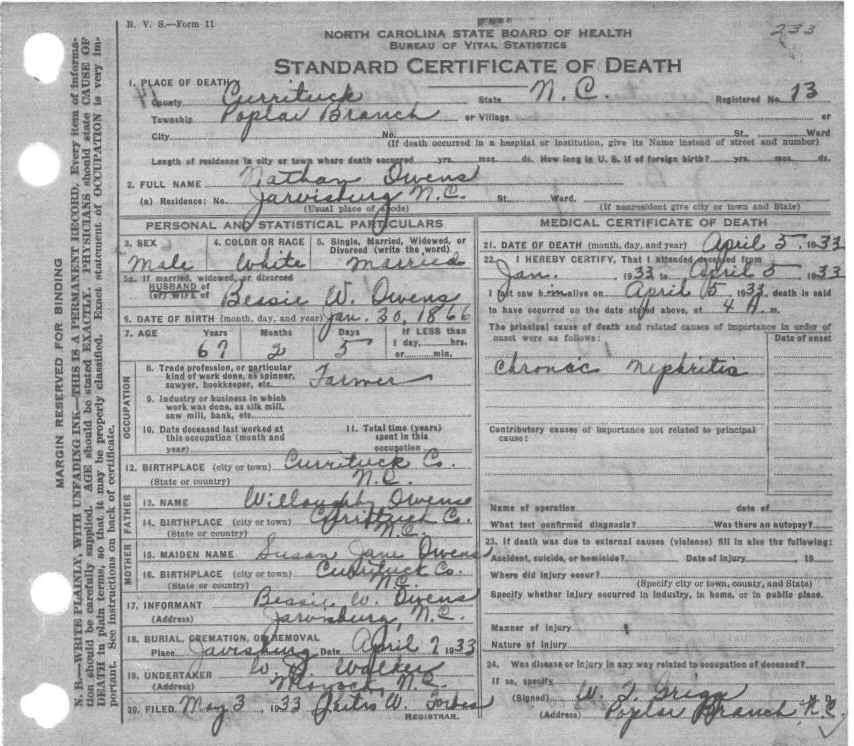 N. C. V. S.—Form 11
233
NORTH CAROLINA STATE BOARD OF HEALTH
BUREAU OF VITAL STATISTICS
STANDARD CERTIFICATE OF DEATH
MARGIN RESERVED FOR BINDING
N. B.—WRITE PLAINLY, WITH UNFADING INK—THIS IS A PERMANENT RECORD. Every item of informa-
tion should be carefully supplied. AGE should be stated EXACTLY. PHYSICIANS should state CAUSE OF
DEATH in plain terms, so that it may be properly classified. Exact statement of OCCUPATION is very im-
portant. See instructions on back of certificate.
1. PLACE OF DEATH
County Currituck State N. C. Registered No. 13
Township Poplar Branch or Village or
City No. St., Ward
(If death occurred in a hospital or institution, give its Name instead of street and number)
Length of residence in city or town where death occurred yrs. mos. ds. How long in U. S. if of foreign birth? yrs. mos. ds.
2. FULL NAME Nathan Owens
(a) Residence: No. Jarvisburg N.C. St. Ward.
(Usual place of abode) (If nonresident give city or town and State)
PERSONAL AND STATISTICAL PARTICULARS
3. SEX 4. COLOR OR RACE 5. Single, Married, Widowed, or
Divorced (write the word)
Male White Married
5a. If married, widowed, or divorced
HUSBAND of
(or) WIFE of Bessie W. Owens
6. DATE OF BIRTH (month, day, and year) Jan. 30, 1866
7. AGE Years Months Days If LESS than
1 day, hrs.
67 2 5 or min.
OCCUPATION
8. Trade profession, or particular
kind of work done, as spinner,
sawyer, bookkeeper, etc. Farmer
9. Industry or business in which
work was done, as silk mill,
saw mill, bank, etc.
10. Date deceased last worked at
this occupation (month and
year)
11. Total time (years)
spent in this
occupation
12. BIRTHPLACE (city or town) Currituck Co.
(State or country) N.C.
FATHER
13. NAME Willoughby Owens
14. BIRTHPLACE (city or town) Currituck Co.
(State or country) N.C.
MOTHER
15. MAIDEN NAME Susan Jane Owens
16. BIRTHPLACE (city or town) Currituck Co.
(State or country) N.C.
17. INFORMANT Bessie W. Owens
(Address) Jarvisburg, N.C.
18. BURIAL, CREMATION, OR REMOVAL
Place Javisburg Date April 7 1933
19. UNDERTAKER Walker
(Address) Moyock, N.C.
20. FILED May 3, 1933 W. Forbes
REGISTRAR.
MEDICAL CERTIFICATE OF DEATH
21. DATE OF DEATH (month, day, and year) April 5, 1933
22. I HEREBY CERTIFY, That I attended deceased from
Jan. 1933 to April 5 1933
I last saw h im alive on April 5, 1933, death is said
to have occurred on the date stated above, at 4 A. m.
The principal cause of death and related causes of importance in order of
onset were as follows: Date of onset
Chronic Nephritis
Contributory causes of importance not related to principal
cause:
Name of operation date of
What test confirmed diagnosis? Was there an autopsy?
23. If death was due to external causes (violence) fill in also the following:
Accident, suicide, or homicide? Date of injury , 19
Where did injury occur?
(Specify city or town, county, and State)
Specify whether injury occurred in industry, in home, or in public place.
Manner of injury
Nature of injury
24. Was disease or injury in any way related to occupation of deceased?
If so, specify
(Signed) W. T. Griggs
(Address) Poplar Branch N.C.